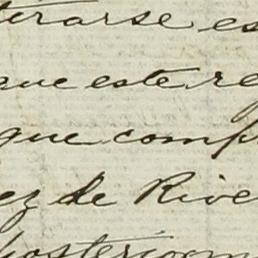 terarse es
que este re
que comp
ez de Rive
posterior